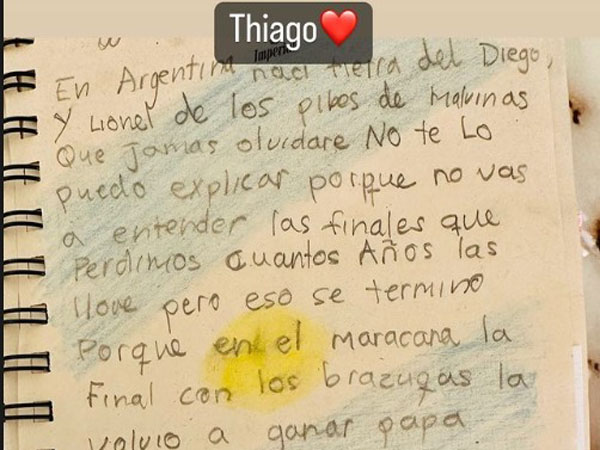 Thiago❤️
En Argentina naci tierra del Diego,
Y Lionel de los pibes de Malvinas
Que jamas olvidare No te Lo
puedo explicar porque no vas
a entender las finales que
Perdimos cuantos Años las
llove pero eso se termino
Porque en el maracana la
Final con los brazucas la
volvio a ganar papa